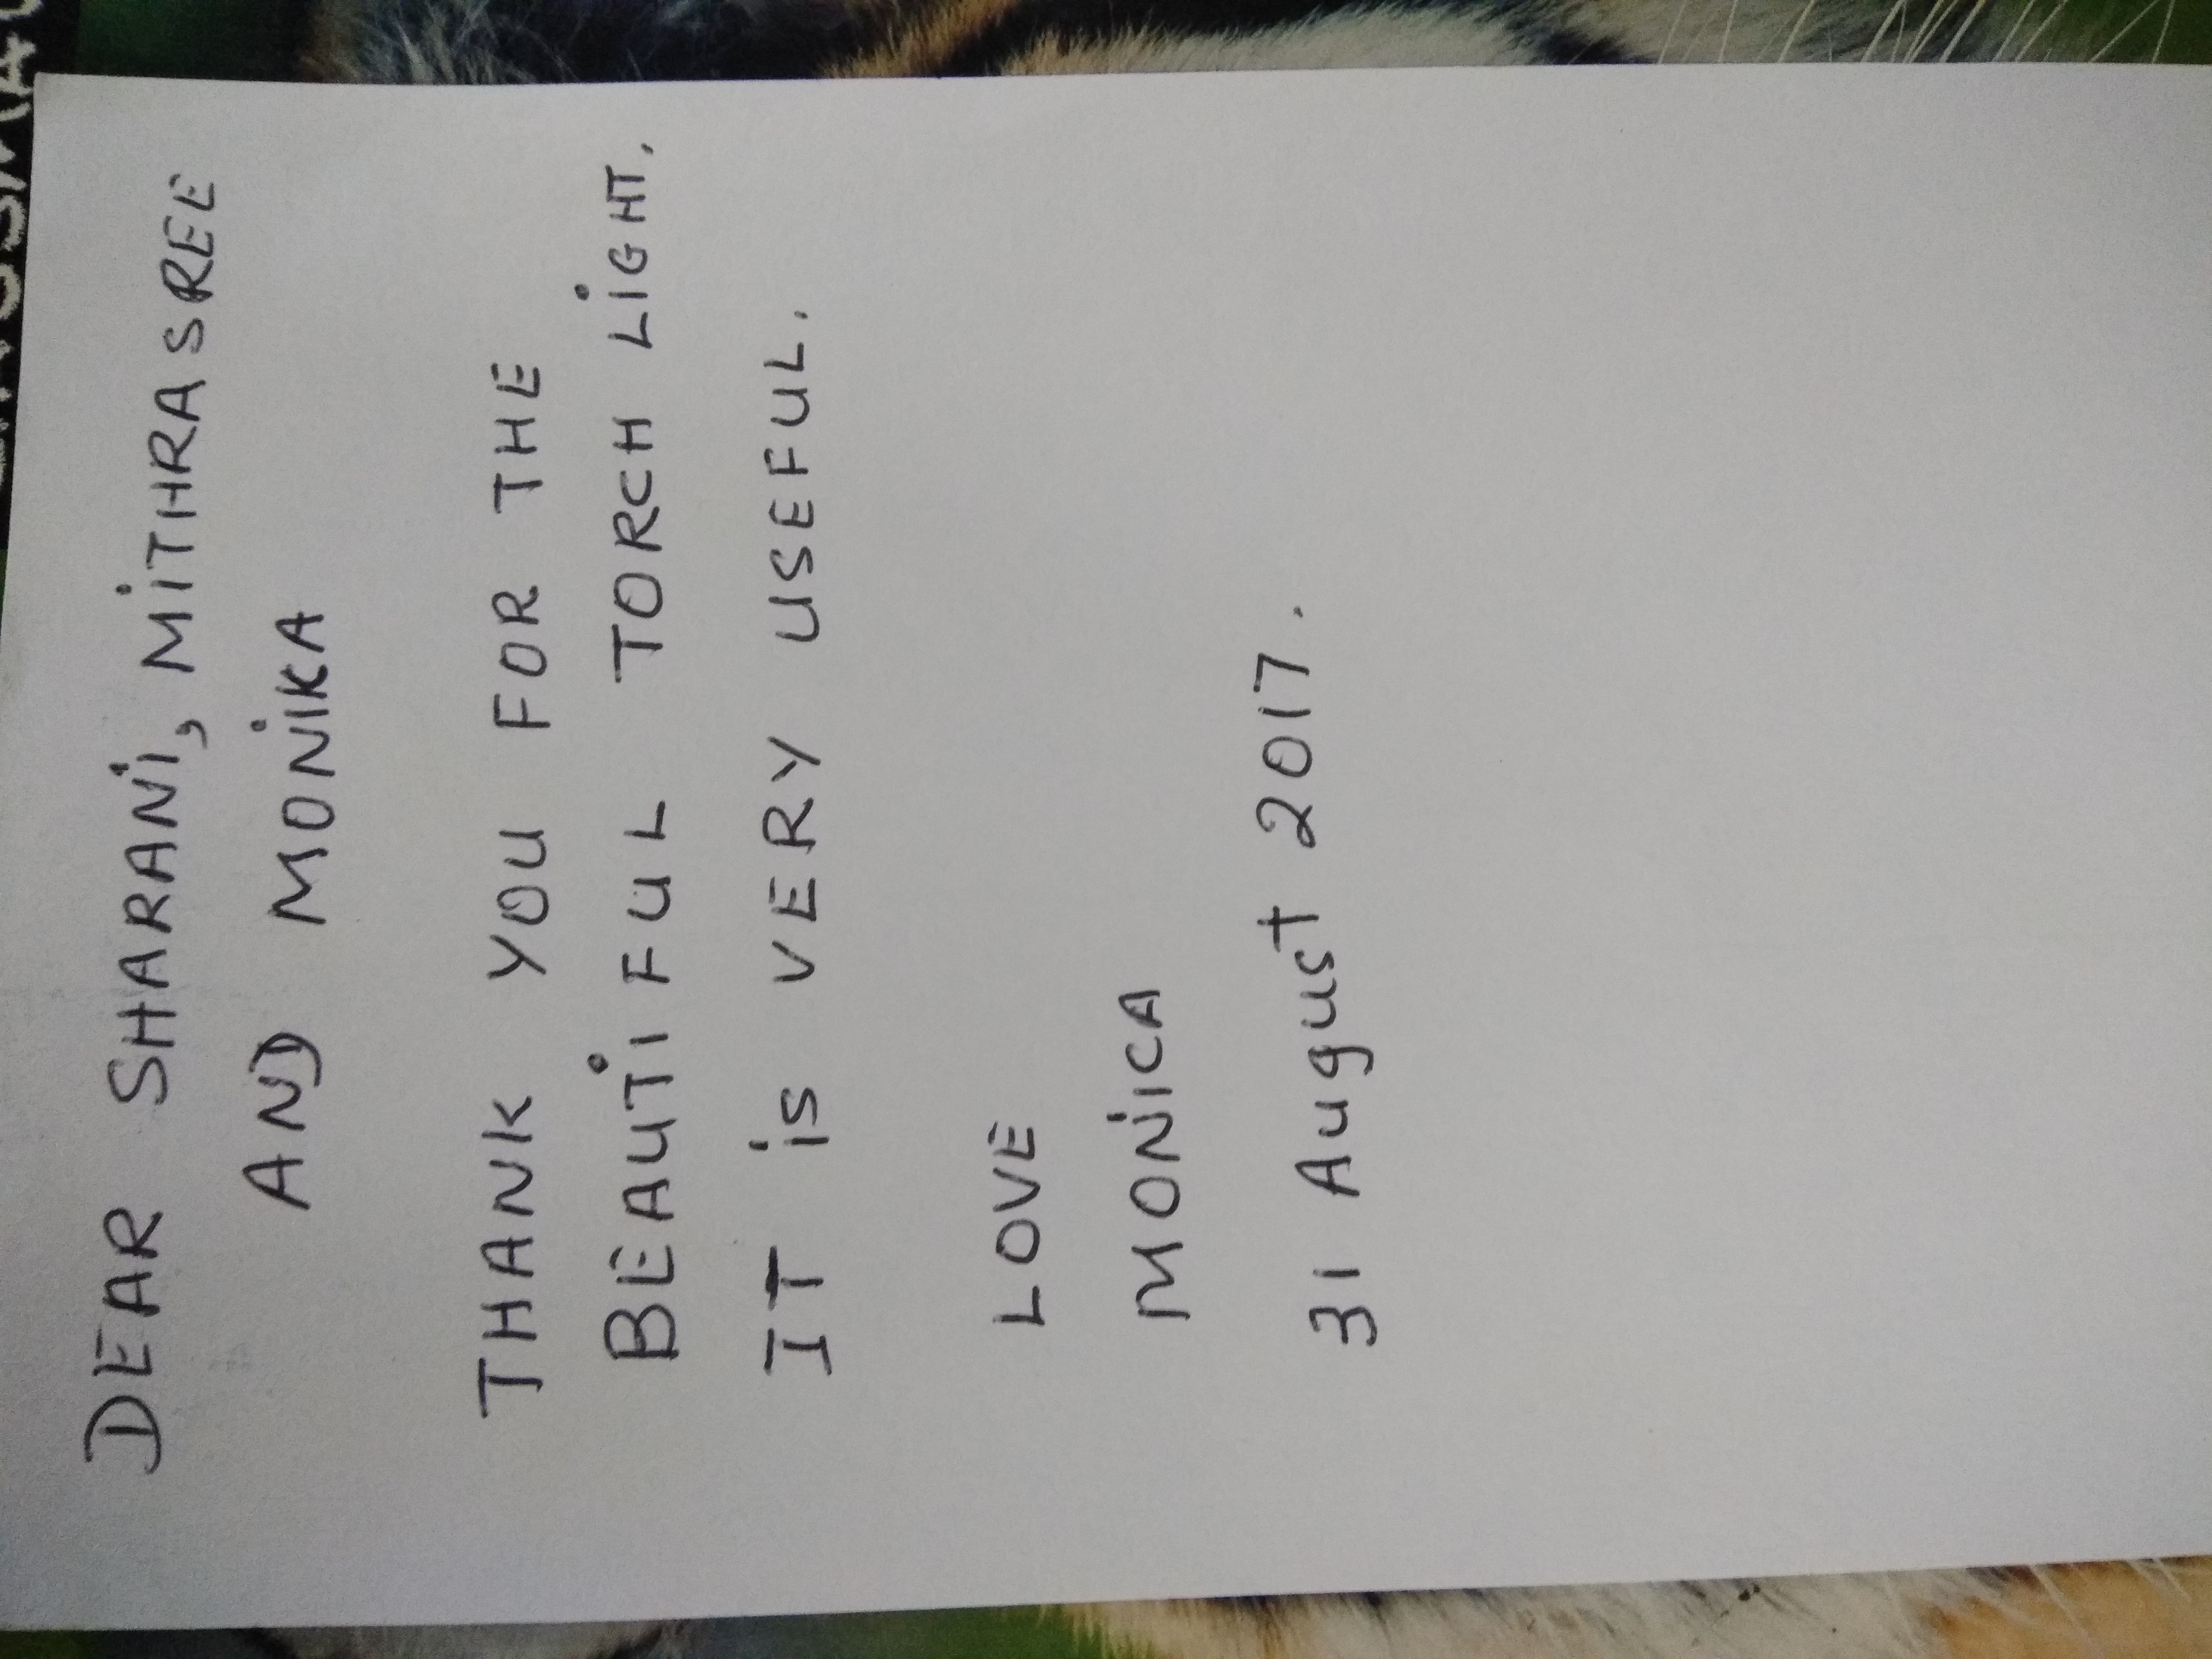 DEAR SHARANI, MiTHRASREE
AND MONiKA
THANK YOU FOR THE
BEAUTiFUL TORCH LiGHT.
IT is VERY USEFUL.
LOVE
MONiCA
31 August 2017.